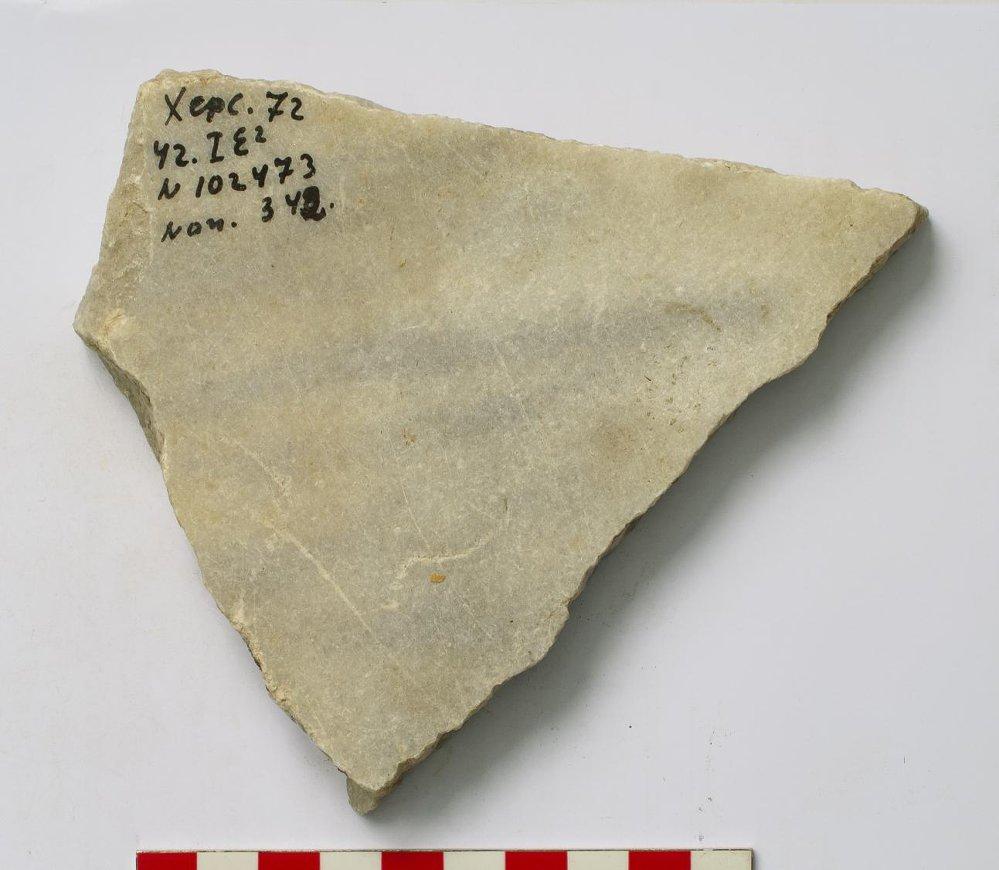 Херс. 72
42. I Е2
N 102473
пол. 342.